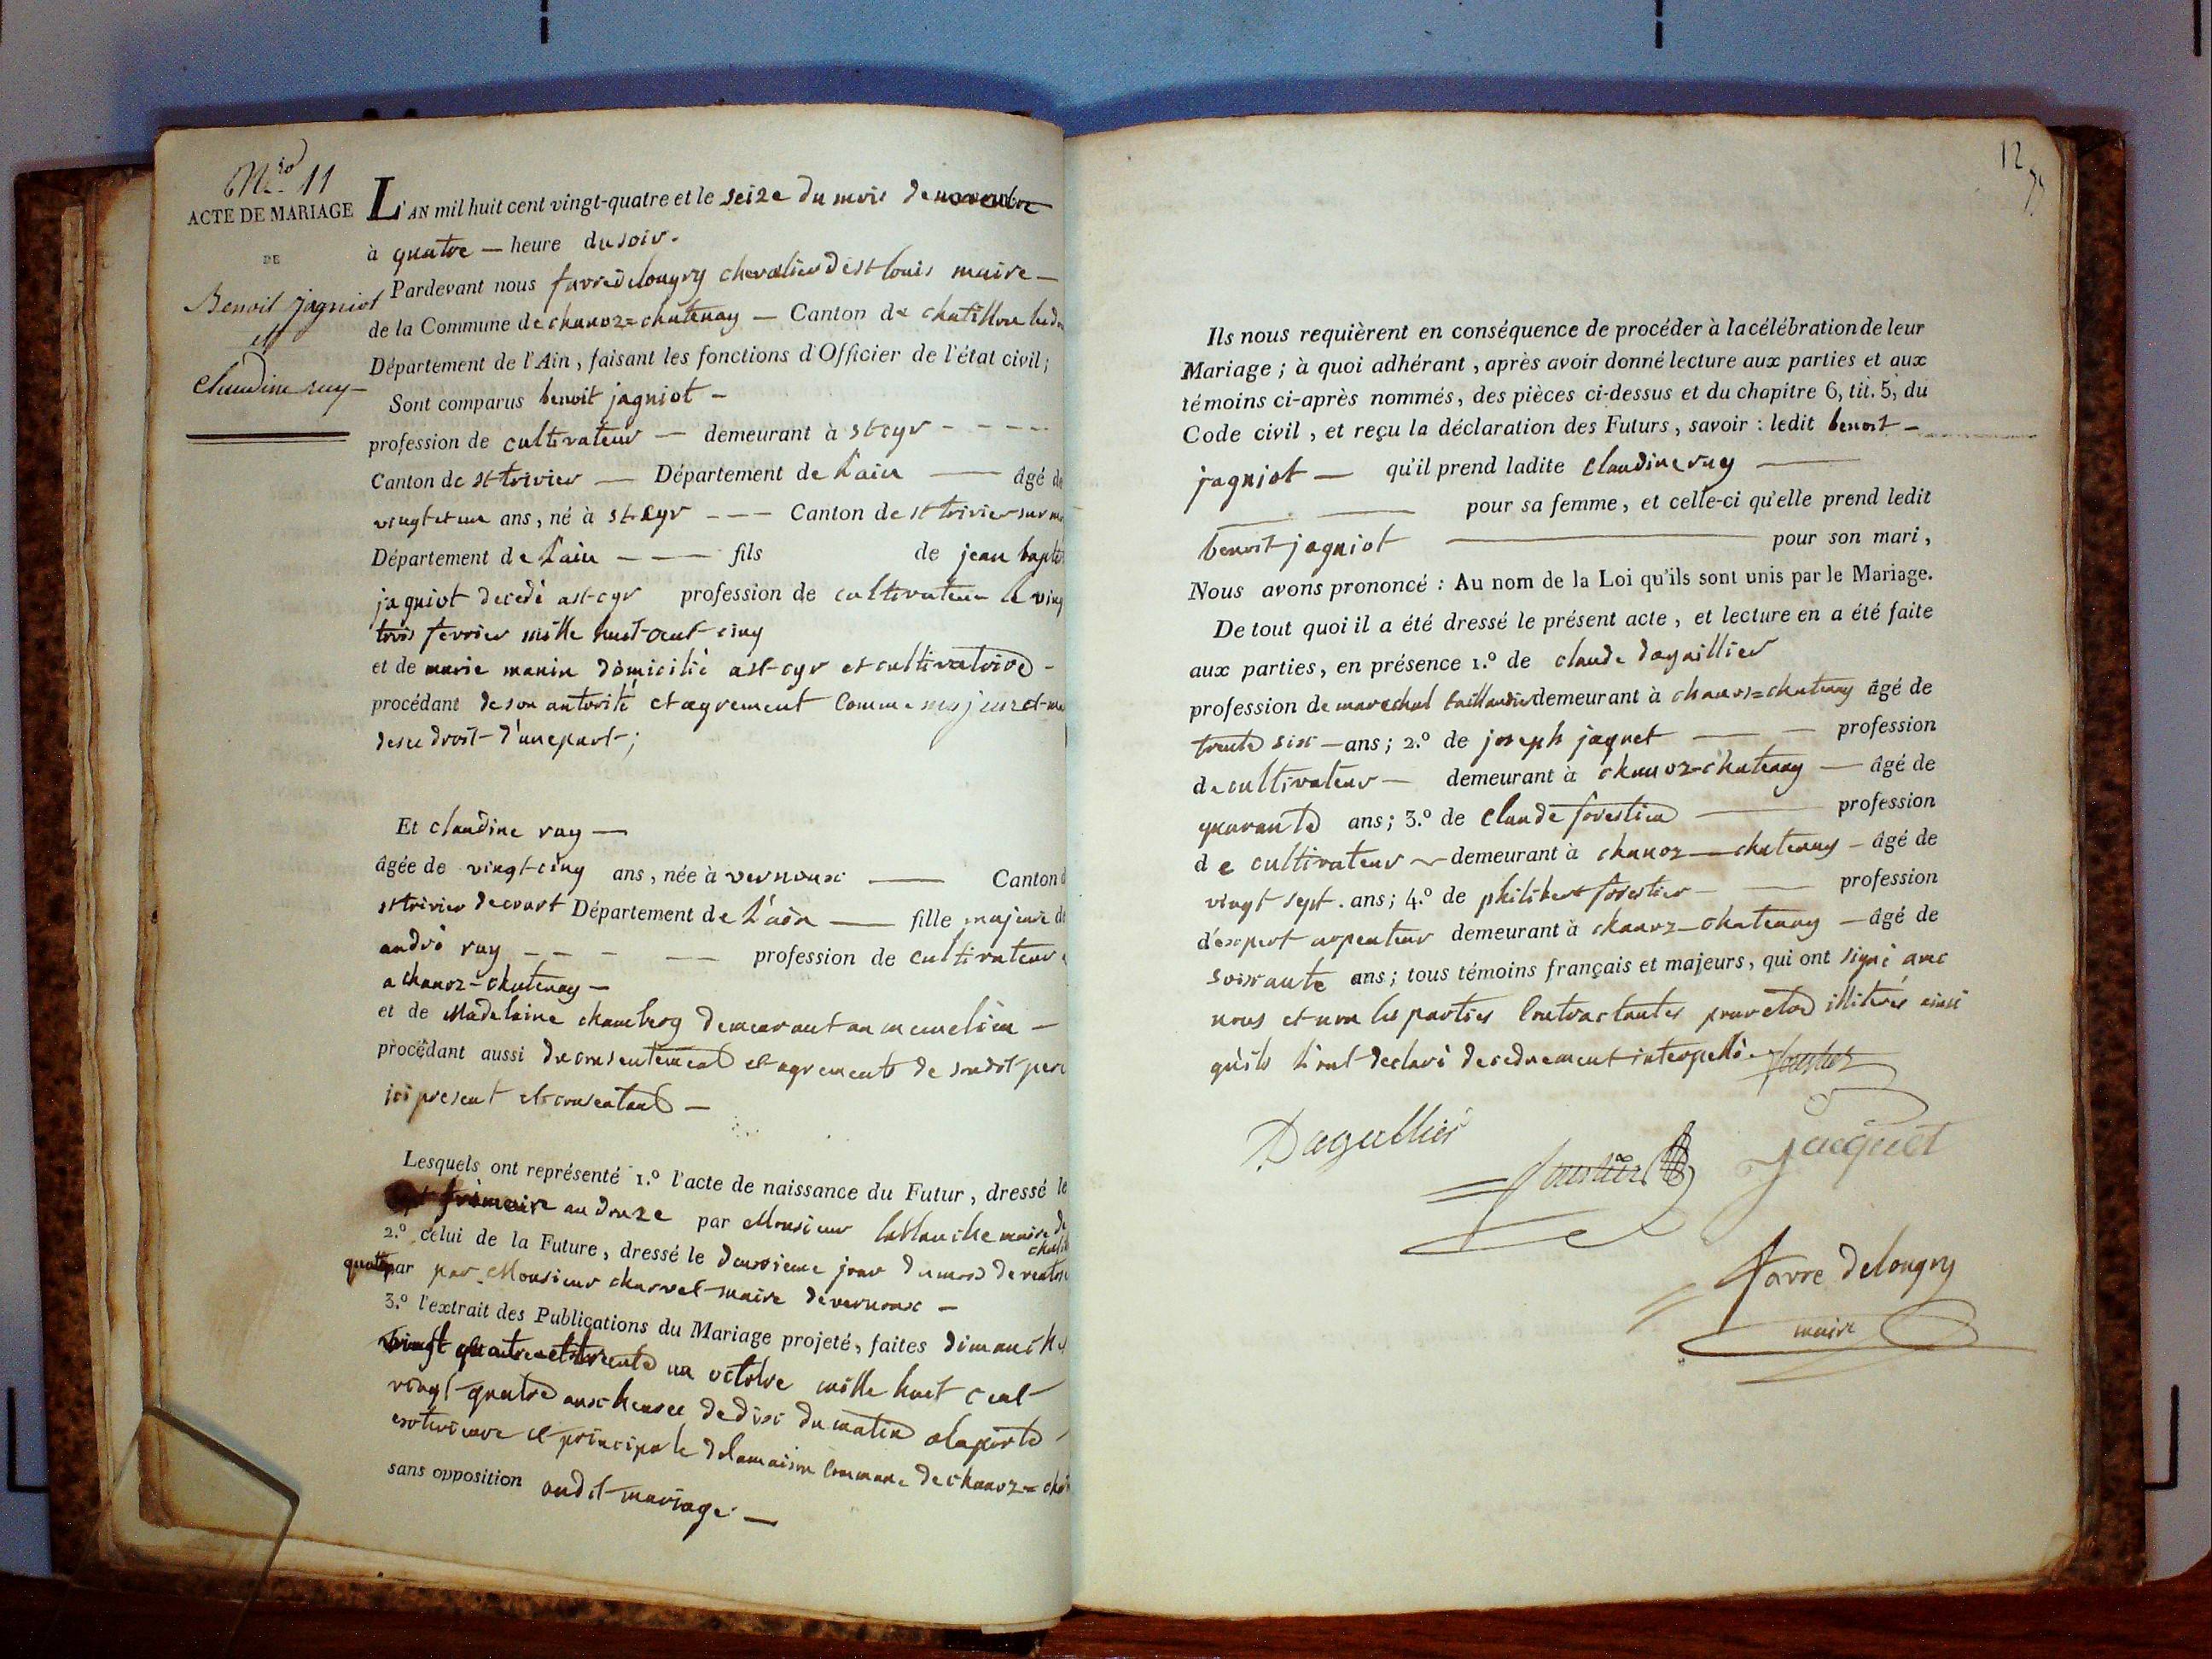 Nro 11
ACTE DE MARIAGE
DE
Benoit jagniot
et
Claudine ruy
L'AN mil huit cent vingt-quatre et le seize du mois de novembre
à quatre — heure du soir.
Pardevant nous favre delongry chevalier de st louis maire —
de la Commune de chanoz=chatenay — Canton de chatillon
Département de l'Ain, faisant les fonctions d'Officier de l'état civil;
Sont comparus benoit jagniot —
profession de cultivateur — demeurant à st cyr - - - -
Canton de st trivier — Département de L'ain — âgé de
vingt et un ans, né à st Cyr - - - Canton de st trivier sur
Département de L'ain - — fils de jean
jagniot decedé a st-cyr profession de cultivateur le
trois fevrier mille huit cent cinq
et de marie manin domicilié a st-cyr et cultivatrice -
procédant de son autorité et agrement Comme majeur et
de ses droit d'une part;
Et claudine ruy —
âgée de vingt-cinq ans, née à vernoux — Canton
st trivier de court Département de L'ain — fille majeure de
andré ruy - - - — profession de cultivateur
a chanoz-chatenay —
et de Madelaine chamberg demeurant au même lieu —
procédant aussi du consentement et agrements de son dit père
ici present et consentant —
Lesquels ont représenté 1.º l'acte de naissance du Futur, dressé le
frimaire an douze par Monsieur lablanche maire de
2.º celui de la Future, dressé le deuxieme jour du mois de
par par Monsieur charvet maire de vernoux —
3.º l'extrait des Publications du Mariage projeté, faites dimanche
vingt quatre et trente un octobre mille huit cent
vingt quatre aux heures de dix du matin a la porte
exterieure et principale de la maison Commune de chanoz=
sans opposition audit mariage. —
12
Ils nous requièrent en conséquence de procéder à la célébration de leur
Mariage; à quoi adhérant, après avoir donné lecture aux parties et aux
témoins ci-après nommés, des pièces ci-dessus et du chapitre 6, tit. 5, du
Code civil, et reçu la déclaration des Futurs, savoir: ledit benoit —
jagniot — qu'il prend ladite claudine ruy —
— pour sa femme, et celle-ci qu'elle prend ledit
benoit jagniot — pour son mari,
Nous avons prononcé: Au nom de la Loi qu'ils sont unis par le Mariage.
De tout quoi il a été dressé le présent acte, et lecture en a été faite
aux parties, en présence 1.º de claude dagaillier
profession de marechal taillandier demeurant à chanoz=chatenay âgé de
trente six — ans; 2.º de joseph jaquet — profession
de cultivateur — demeurant à chanoz-chatenay — âgé de
quarante ans; 3.º de Claude forestier — profession
de cultivateur — demeurant à chanoz — chatenay — âgé de
vingt sept. ans; 4.º de philibert forestier — profession
d'expert arpenteur demeurant à chanoz-chatenay — âgé de
soixante ans; tous témoins français et majeurs, qui ont signé avec
nous et non les parties Contractantes pour etre illiteres ainsi
qu'ils L'ont declaré de ce duement interpellé.
Dagallier
Jacquet
favre delongry
maire